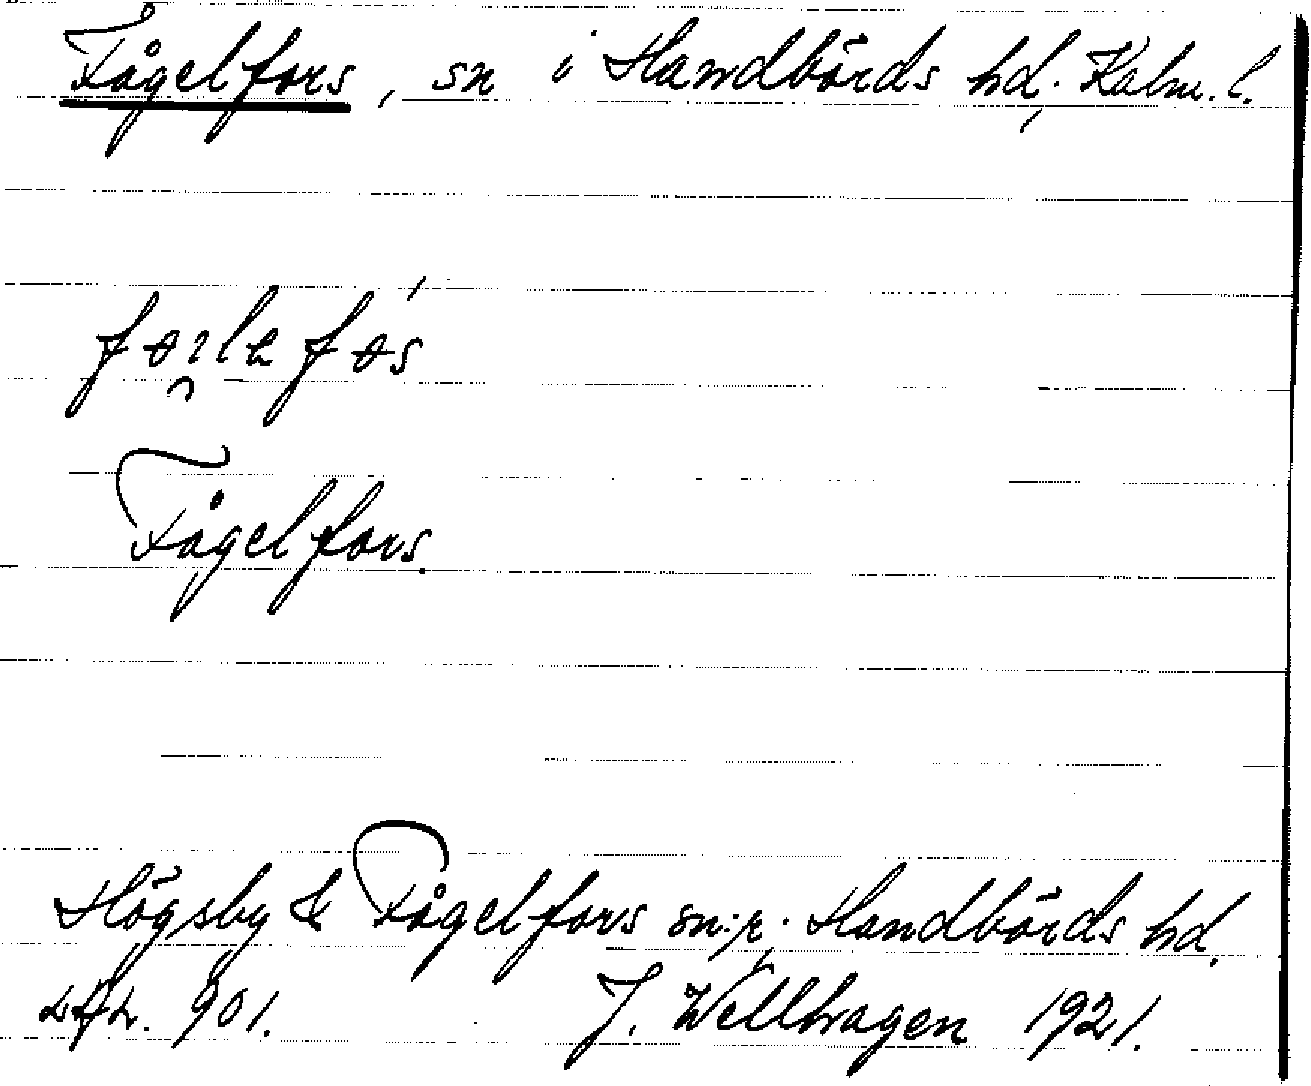 Fågelfors, sn i Handbörds hd, Kalm. l.
Fågelfors.
Högsby & Fågelfors sn:r, Handbörds hd.
901. J. Wellhagen 1921.